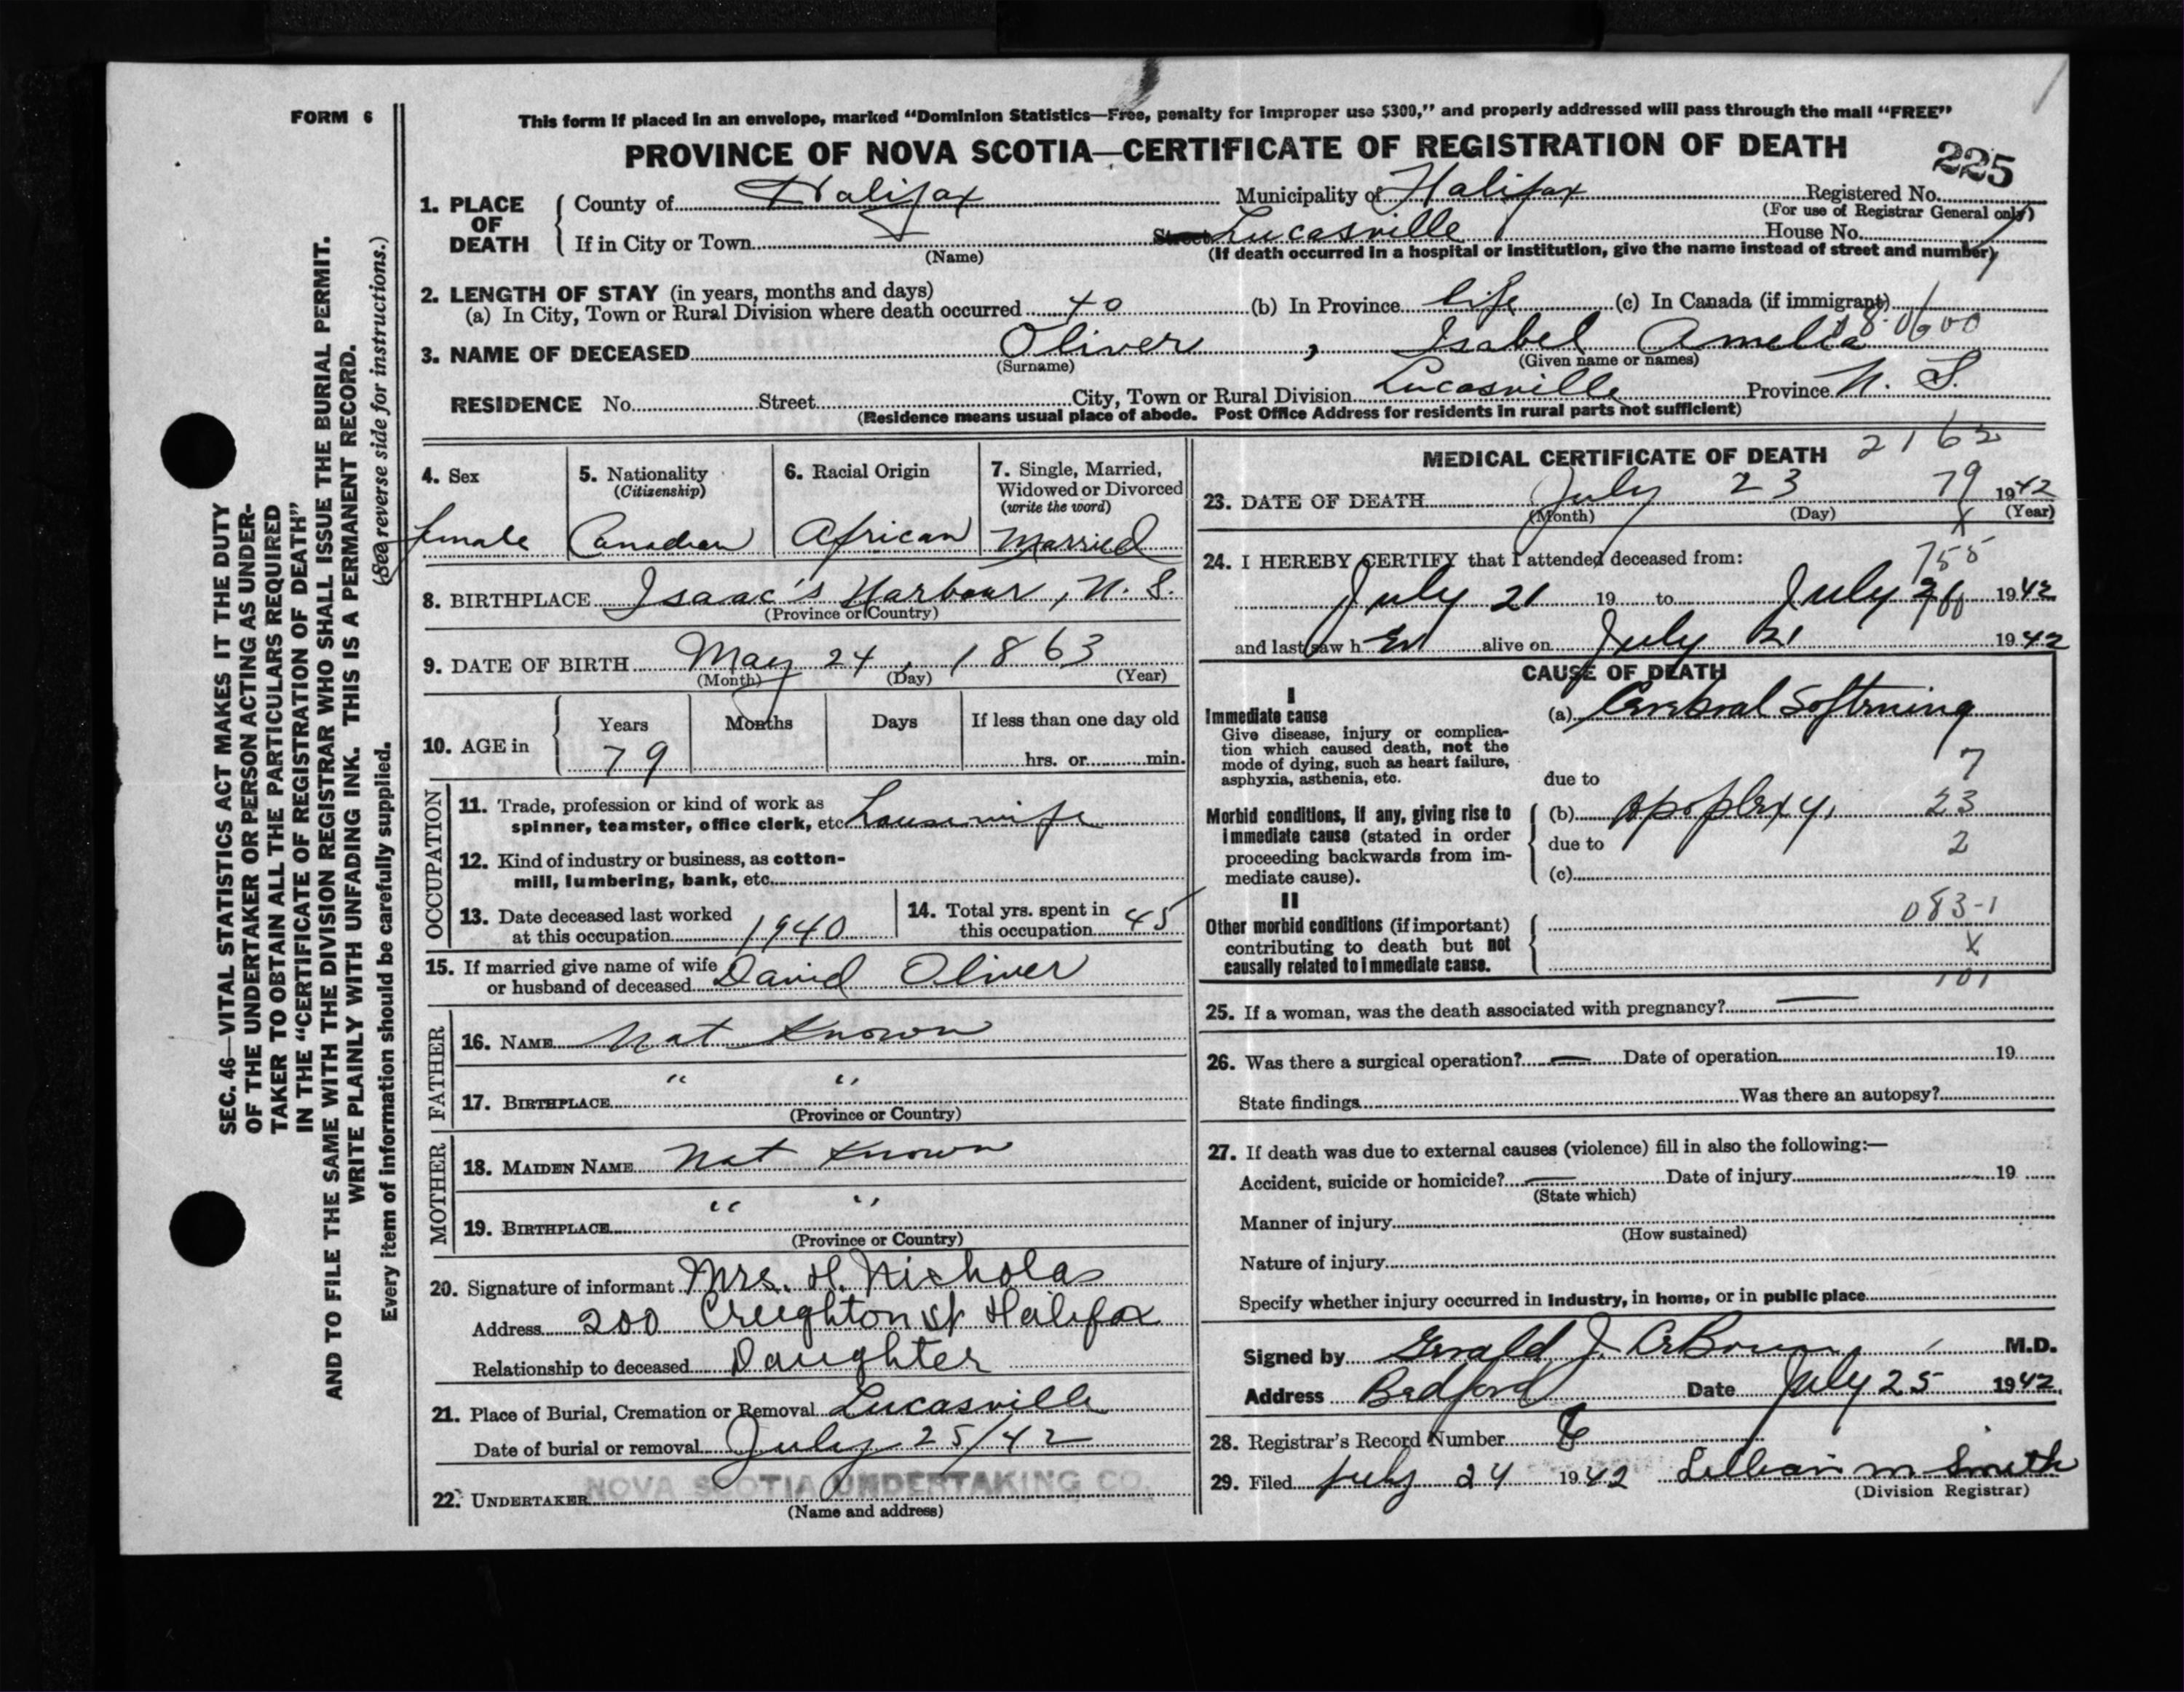 FORM 6
This form if placed in an envelope, marked "Dominion Statistics—Free, penalty for improper use $300," and properly addressed will pass through the mail "FREE"
PROVINCE OF NOVA SCOTIA—CERTIFICATE OF REGISTRATION OF DEATH
225
1. PLACE OF DEATH
County of Halifax Municipality of Halifax Registered No.
(For use of Registrar General only)
If in City or Town Street Lucasville House No.
(Name) (If death occurred in a hospital or institution, give the name instead of street and number)
2. LENGTH OF STAY (in years, months and days)
(a) In City, Town or Rural Division where death occurred 40 (b) In Province life (c) In Canada (if immigrant)
3. NAME OF DECEASED Oliver, Isabel Amelia
(Surname) (Given name or names)
RESIDENCE No. Street City, Town or Rural Division Lucasville Province N. S.
(Residence means usual place of abode. Post Office Address for residents in rural parts not sufficient)
4. Sex
female
5. Nationality
(Citizenship)
Canadian
6. Racial Origin
African
7. Single, Married, Widowed or Divorced
(write the word)
Married
8. BIRTHPLACE Isaac's Harbour, N. S.
(Province or Country)
9. DATE OF BIRTH May 24, 1863
(Month) (Day) (Year)
10. AGE in
Years Months Days If less than one day old
79 hrs. or min.
OCCUPATION
11. Trade, profession or kind of work as
spinner, teamster, office clerk, etc. housewife
12. Kind of industry or business, as cotton-
mill, lumbering, bank, etc.
13. Date deceased last worked
at this occupation 1940
14. Total yrs. spent in
this occupation 45
15. If married give name of wife
or husband of deceased David Oliver
FATHER
16. NAME Not Known
17. BIRTHPLACE " "
(Province or Country)
MOTHER
18. MAIDEN NAME Not Known
19. BIRTHPLACE " "
(Province or Country)
20. Signature of informant Mrs. H. Nicholas
Address 200 Creighton St Halifax
Relationship to deceased Daughter
21. Place of Burial, Cremation or Removal Lucasville
Date of burial or removal July 25/42
22. UNDERTAKER NOVA SCOTIA UNDERTAKING CO.
(Name and address)
MEDICAL CERTIFICATE OF DEATH 2162
23. DATE OF DEATH July 23 79 1942
(Month) (Day) (Year)
X
24. I HEREBY CERTIFY that I attended deceased from:
755
July 21 19 to July 1942
and last saw h er alive on July 21 1942
CAUSE OF DEATH
I
Immediate cause
Give disease, injury or complica-
tion which caused death, not the
mode of dying, such as heart failure,
asphyxia, asthenia, etc.
(a) Cerebral Softening
7
due to
Morbid conditions, if any, giving rise to
immediate cause (stated in order
proceeding backwards from im-
mediate cause).
(b) Apoplexy. 23
due to 2
(c)
II
Other morbid conditions (if important)
contributing to death but not
causally related to immediate cause.
083-1
X
101
25. If a woman, was the death associated with pregnancy? —
26. Was there a surgical operation? — Date of operation 19
State findings Was there an autopsy?
27. If death was due to external causes (violence) fill in also the following:—
Accident, suicide or homicide? — Date of injury 19
(State which)
Manner of injury
(How sustained)
Nature of injury
Specify whether injury occurred in industry, in home, or in public place
Signed by Gerald J. M.D.
Address Bedford Date July 25 1942.
28. Registrar's Record Number
29. Filed July 24 1942 Lillian M Smith
(Division Registrar)
SEC. 46—VITAL STATISTICS ACT MAKES IT THE DUTY
OF THE UNDERTAKER OR PERSON ACTING AS UNDER-
TAKER TO OBTAIN ALL THE PARTICULARS REQUIRED
IN THE "CERTIFICATE OF REGISTRATION OF DEATH"
AND TO FILE THE SAME WITH THE DIVISION REGISTRAR WHO SHALL ISSUE THE BURIAL PERMIT.
WRITE PLAINLY WITH UNFADING INK. THIS IS A PERMANENT RECORD.
(See reverse side for instructions.)
Every item of information should be carefully supplied.